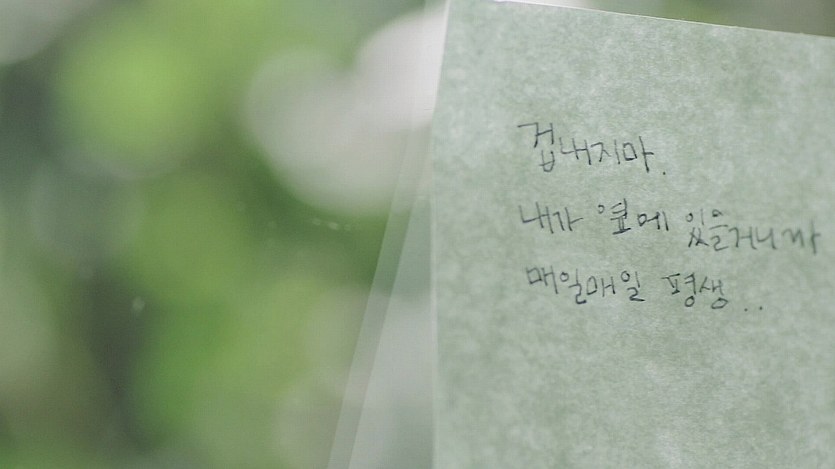 겁내지마.
내가 옆에 있을거니까
매일매일 평생..